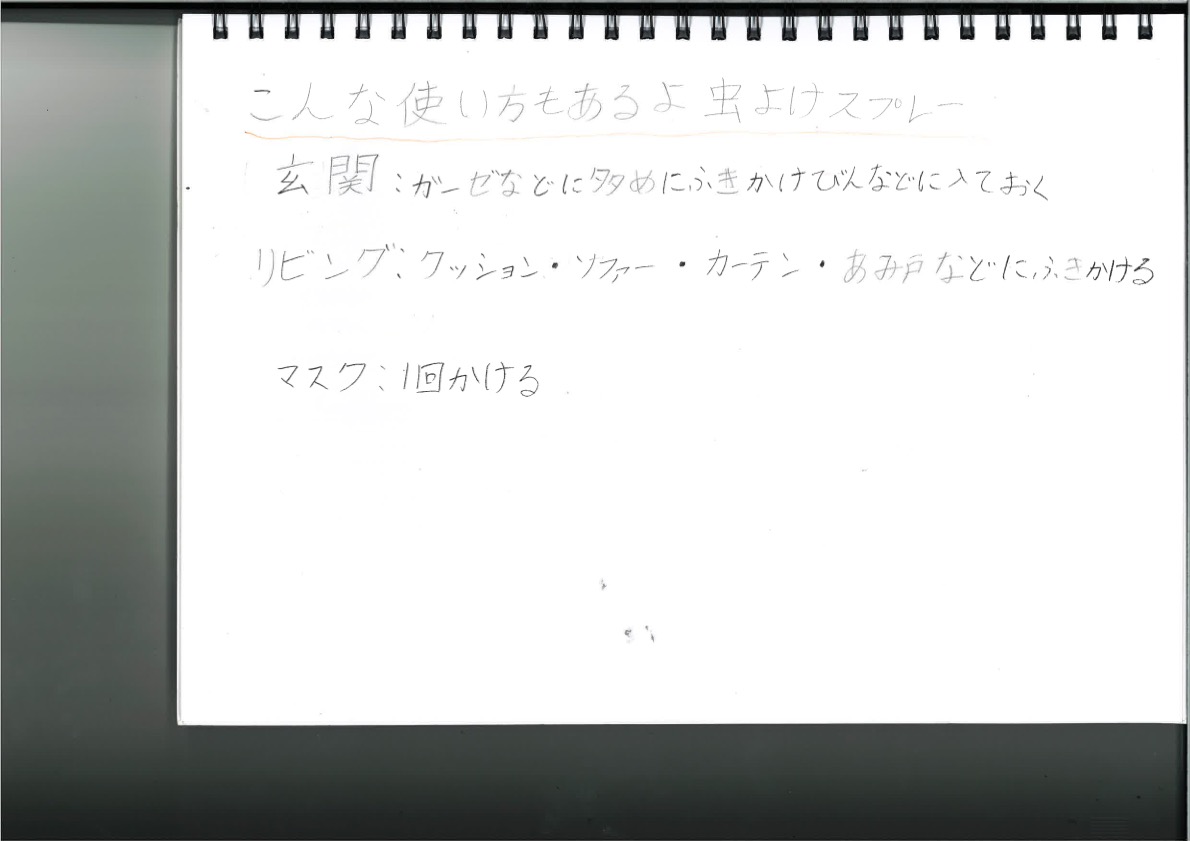 こんな使い方もあるよ 虫よけスプレー
玄関：ガーゼなどに多めにふきかけびんなどに入ておく
リビング：クッション・ソファー・カーテン・あみ戸などにふきかける
マスク：1回かける